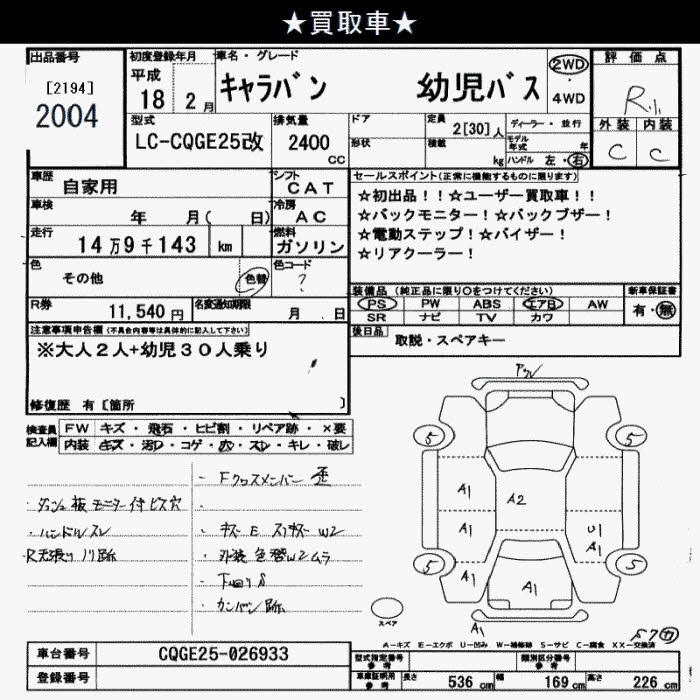 ★買取車★
出品番号
[2194]
2004
初度登録年月
平成
18 2月
車名・グレード
キャラバン 幼児バス
2WD
・
4WD
評価点
R1
外装 内装
C C
型式
LC-CQGE25改
排気量
2400
CC
ドア
形状
定員
2[30]人
積載
kg
ディーラー・並行
モデル年式 年
ハンドル 左・右
車歴
自家用
シフト
CAT
車検
年 月( 日)
冷房
AC
走行
14万9千143 km
燃料
ガソリン
色
その他
色替
色コード
?
R券
11,540円
名変通知期限
月 日
セールスポイント(正常に機能するものに限ります)
☆初出品!!☆ユーザー買取車!!
☆バックモニター!☆バックブザー!
☆電動ステップ!☆バイザー!
☆リアクーラー!
装備品(純正品に限り○をつけてください)
PS PW ABS エアB AW
SR ナビ TV カワ
新車保証書
有・無
後日品
取説・スペアキー
注意事項申告欄(不具合内容等は具体的に記入して下さい)
※大人2人+幼児30人乗り
修復歴 有[箇所 ]
検査員記入欄
FW キズ・飛石・ヒビ割・リペア跡・×要
内装 キズ・汚レ・コゲ・穴・スレ・キレ・破レ
・ダッシュ板モニター付ビス穴
・ハンドルスレ
・R天張りノリ跡
・Fクロスメンバー歪
・キズE スリキズW2
・外装色替W2ムラ
・下回りS
・カンバン跡
アル
5
5
A1
A2
A1
U1
A1
5
A1
5
A1
A1
スペア
A-キズ E-エクボ U-凹み W-補修跡 S-サビ C-腐食 XX-交換済
車台番号
CQGE25-026933
登録番号
型式指定番号
参考
類別区分番号
参考
車庫証明用
参考
長さ 536 cm 幅 169 cm 高さ 226 cm